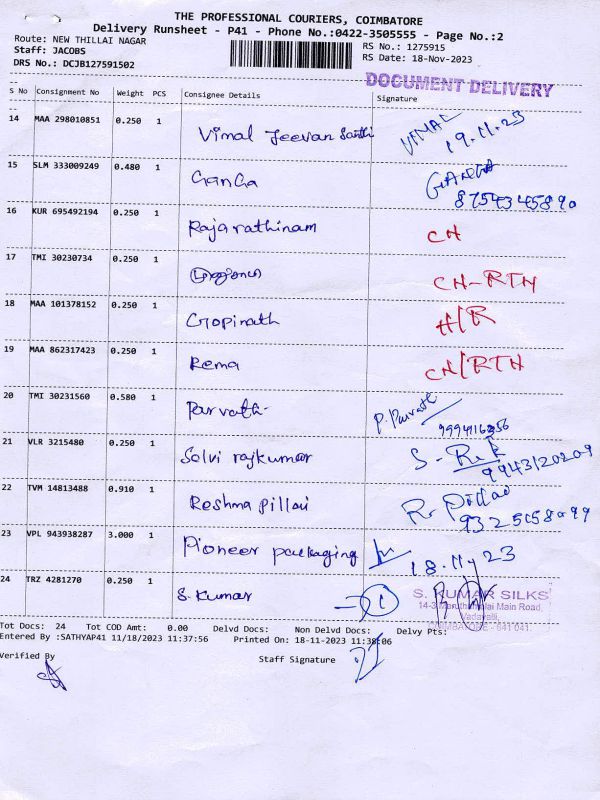 THE PROFESSIONAL COURIERS, COIMBATORE
Delivery Runsheet - P41 - Phone No.:0422-3505555 - Page No.:2
Route: NEW THILLAI NAGAR
RS No.: 1275915
Staff: JACOBS
RS Date: 18-Nov-2023
DRS No.: DCJB127591502
DOCUMENT DELIVERY
S No Consignment No Weight PCS Consignee Details Signature
14 MAA 298010851 0.250 1 Vimal Jeevan Santhi VIMAL 19.11.23
15 SLM 333009249 0.480 1 GanGa GANGA
8754345890
16 KUR 695492194 0.250 1 Rajarathinam CH
17 TMI 30230734 0.250 1 CH-RTH
18 MAA 101378152 0.250 1 Gopinath H/R
19 MAA 862317423 0.250 1 Rema CH/RTH
20 TMI 30231560 0.580 1 Parvathi P. Parvath
21 VLR 3215480 0.250 1 Selvi rajkumar S-
9943120209
22 TVM 14813488 0.910 1 Reshma pillai R. Pillai
23 VPL 943938287 3.000 1 Pioneer packaging 18.11.23
24 TRZ 4281270 0.250 1 S. Kumar 1 S. KUMAR SILKS
Main Road,
Vadavalli,
COIMBATORE - 641 041.
Tot Docs: 24 Tot COD Amt: 0.00 Delvd Docs: Non Delvd Docs: Delvy Pts:
Entered By :SATHYAP41 11/18/2023 11:37:56 Printed On: 18-11-2023 11:38:06
Verified By Staff Signature